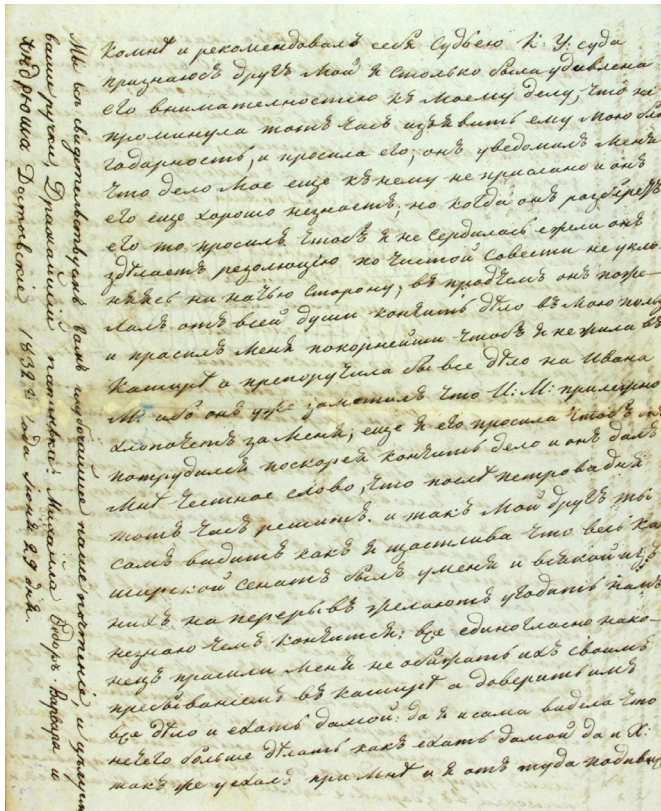 комнѣ и рекомендовалъ себя Судьею К: У: суда
признаюсь другъ Мой я столько была удивлена
его внимателностию къ Моему делу, что не
проминула тотъ часъ изъявить ему Мою бла
годарность, и просила его; онъ уведомилъ Меня
что дело Мое еще къ нему не прислано и онъ
его еще хорошо незнаетъ; но когда онъ разберетъ
его то просилъ чтобъ я не сердилась ежели онъ
здѣлаетъ резолюцію по чистой совести не укло
няясь ни на чью сторону; въ протчемъ онъ поже
лалъ отъ всей души кончить дѣло въ Мою польз
и прасилъ Меня покорнейши чтобъ я не жила въ
Каширѣ а препоручила бы все дѣло на Ивана
М: ибо онъ уже заметилъ что И: М: прилежно
хлопочетъ за Меня; еще я его просила чтобъ
потрудился поскорей кончить дело и онъ далъ
Мнѣ честное слово, что послѣ петрова дня
тотъ часъ решитъ. и такъ Мой другъ ты
самъ видишь какъ я щастлива что весь ка
ширской сенатъ былъ уменя и всякой изъ
нихъ на перерывъ желаютъ угодить намъ
незнаю чемъ кончится: все единогласно нако-
нецъ прасили Меня не обажать ихъ своимъ
пребываніемъ въ каширѣ а доверить имъ
все дѣло и ехать дамой: да я и сама видела что
нечего больше дѣлать какъ ехать дамой да и Х:
такъ же уехалъ при Мнѣ и я отъ туда
Мы всѣ свидетельствуемъ вамъ глубочайшее наше почтеніе, и цѣлуемъ
ваши ручки, Дражайшій папинька: Михайла Ѳедоръ Варвара и
Андрюша Достоевскіе 1832го года Июня 29 дня.